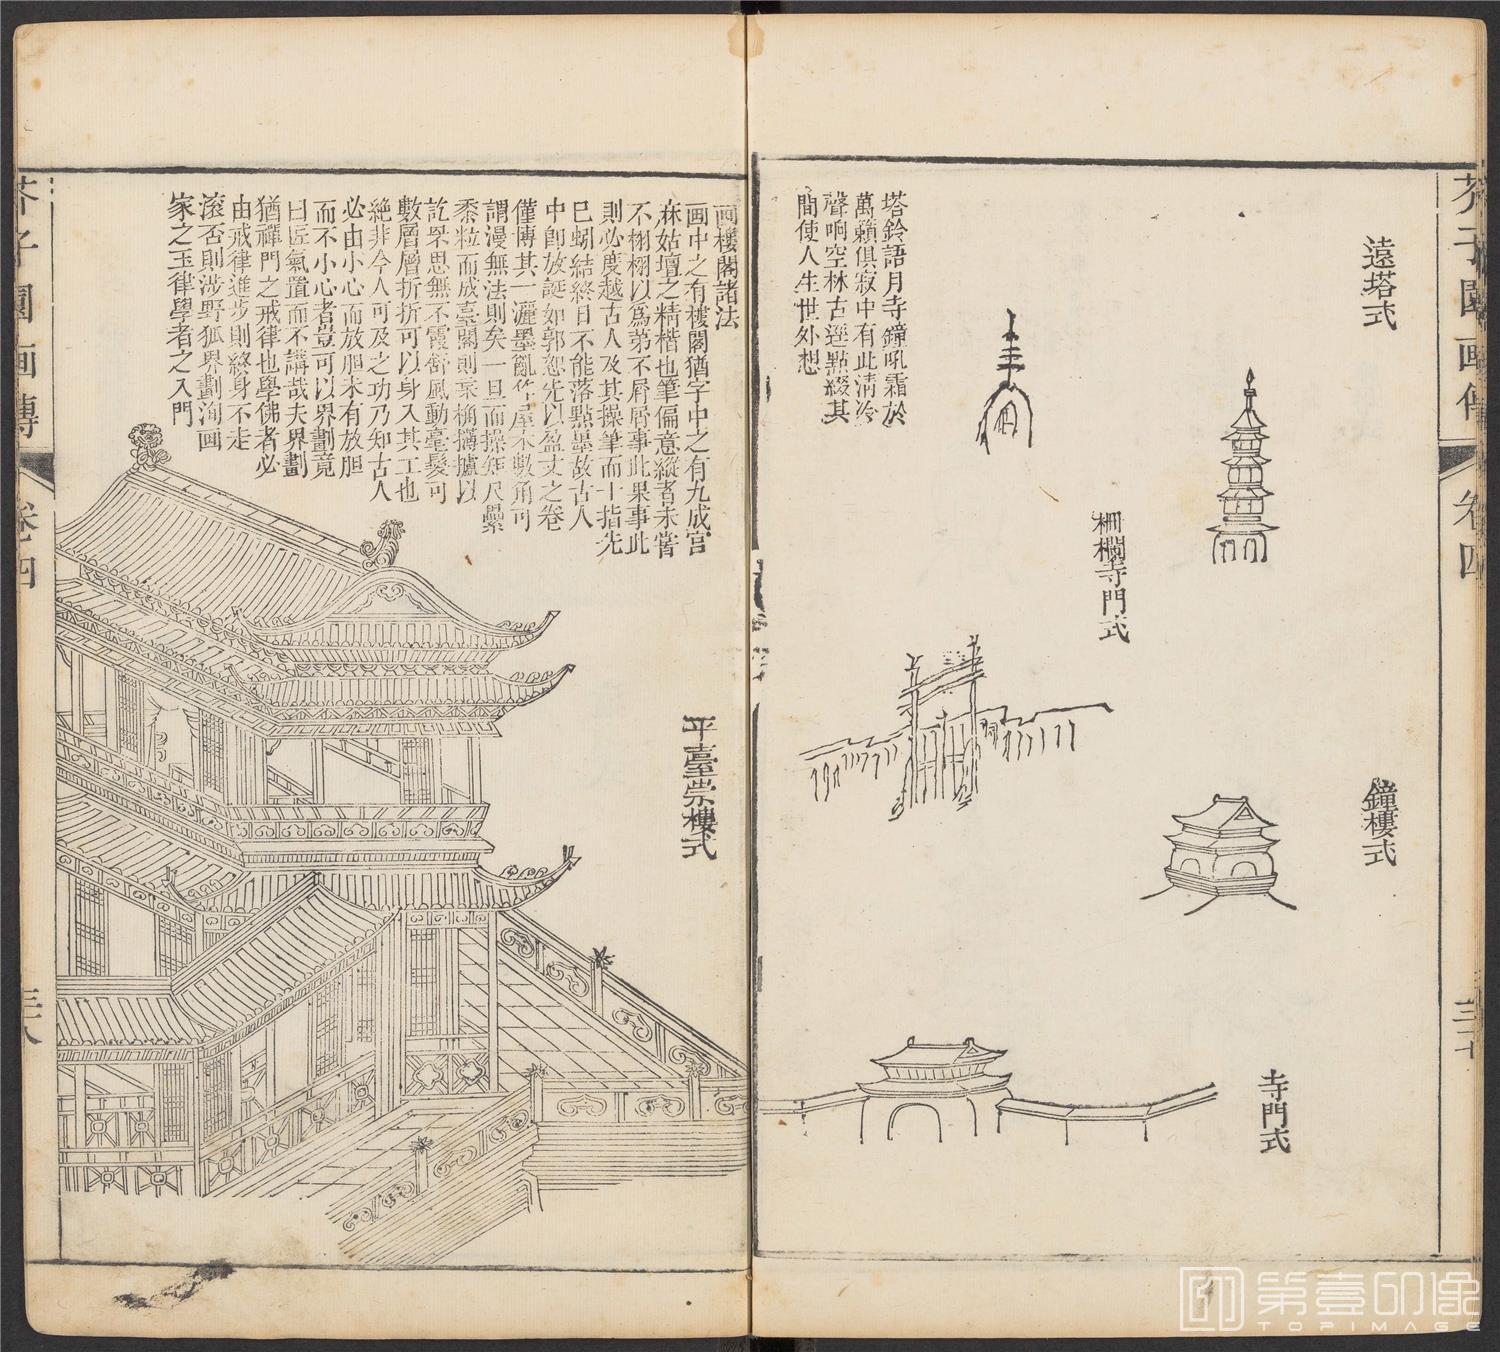 芥子園画傳
卷四
三十七
遠塔式
鐘樓式
寺門式
柵欄寺門式
塔鈴語月寺鐘吼霜於
萬籟俱寂中有此清泠
聲响空林古逕點綴其
間使人生世外想
画樓閣諸法
画中之有樓閣猶字中之有九成宮
麻姑壇之精楷也筆偏意縱者未嘗
不栩栩以爲第不屑屑事此果事此
則必度越古人及其操筆而十指先
已蚓結終日不能落點墨故古人
中卽放誕如郭恕先以盈丈之卷
僅博其一灑墨亂竹屋木數角可
謂漫無法則矣一旦而操矩尺纍
黍粒而成臺閣則榱桷欂櫨以
訖罘思無不霞舒風動毫髮可
數層層折折可以身入其工也
絶非今人可及之功乃知古人
必由小心而放胆未有放胆
而不小心者豈可以界劃竟
曰匠氣置而不講哉夫界劃
猶禪門之戒律也學佛者必
由戒律進步則終身不走
滚否則涉野狐界劃洵画
家之玉律學者之入門
平臺崇樓式
芥子園画傳
卷四
三十八
第壹印像
TOPIMAGE